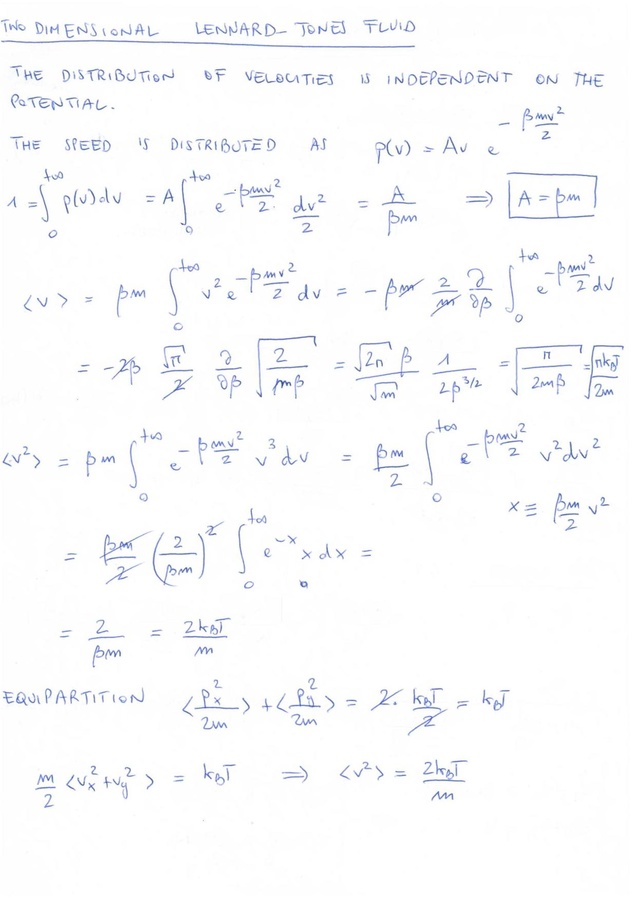 TWO DIMENSIONAL LENNARD-JONES FLUID
THE DISTRIBUTION OF VELOCITIES IS INDEPENDENT ON THE
POTENTIAL.
THE SPEED IS DISTRIBUTED AS p(v) = Av e^{-βmv²/2}
1 = ∫₀^{+∞} p(v)dv = A ∫₀^{+∞} e^{-βmv²/2} dv²/2 = A/βm ⟹ A = βm
<v> = βm ∫₀^{+∞} v² e^{-βmv²/2} dv = -βm 2/m ∂/∂β ∫₀^{+∞} e^{-βmv²/2} dv
= -2β √π/2 ∂/∂β √(2/mβ) = √(2π) β/√m 1/2β^{3/2} = √(π/2mβ) = √(πk_BT/2m)
<v²> = βm ∫₀^{+∞} e^{-βmv²/2} v³ dv = βm/2 ∫₀^{+∞} e^{-βmv²/2} v² dv²
x ≡ βm/2 v²
= βm/2 (2/βm)² ∫₀^{+∞} e^{-x} x dx =
= 2/βm = 2k_BT/m
EQUIPARTITION <p_x²/2m> + <p_y²/2m> = 2·k_BT/2 = k_BT
m/2 <v_x²+v_y²> = k_BT ⟹ <v²> = 2k_BT/m